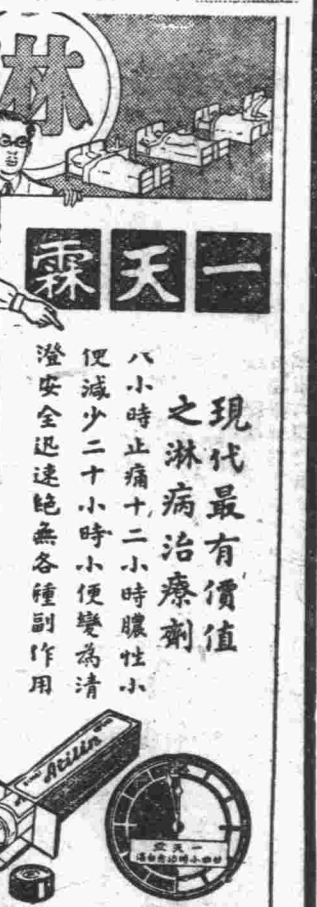 淋
一天霖
現代最有價值
之淋病治療劑
八小時止痛十二小時膿性小
便減少二十小時小便變為清
澄安全迅速絕無各種副作用
Atilin
一天霖